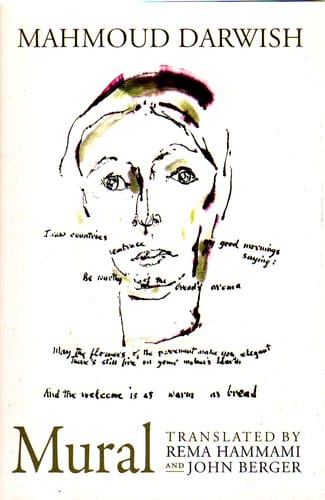 MAHMOUD DARWISH
I saw countries embrace good mornings
saying:
Be worthy of the bread's aroma
May the flowers of the pavement make you elegant
there's still fire on your mother's hearth
And the welcome is as warm as bread
Mural
TRANSLATED BY
REMA HAMMAMI
AND JOHN BERGER